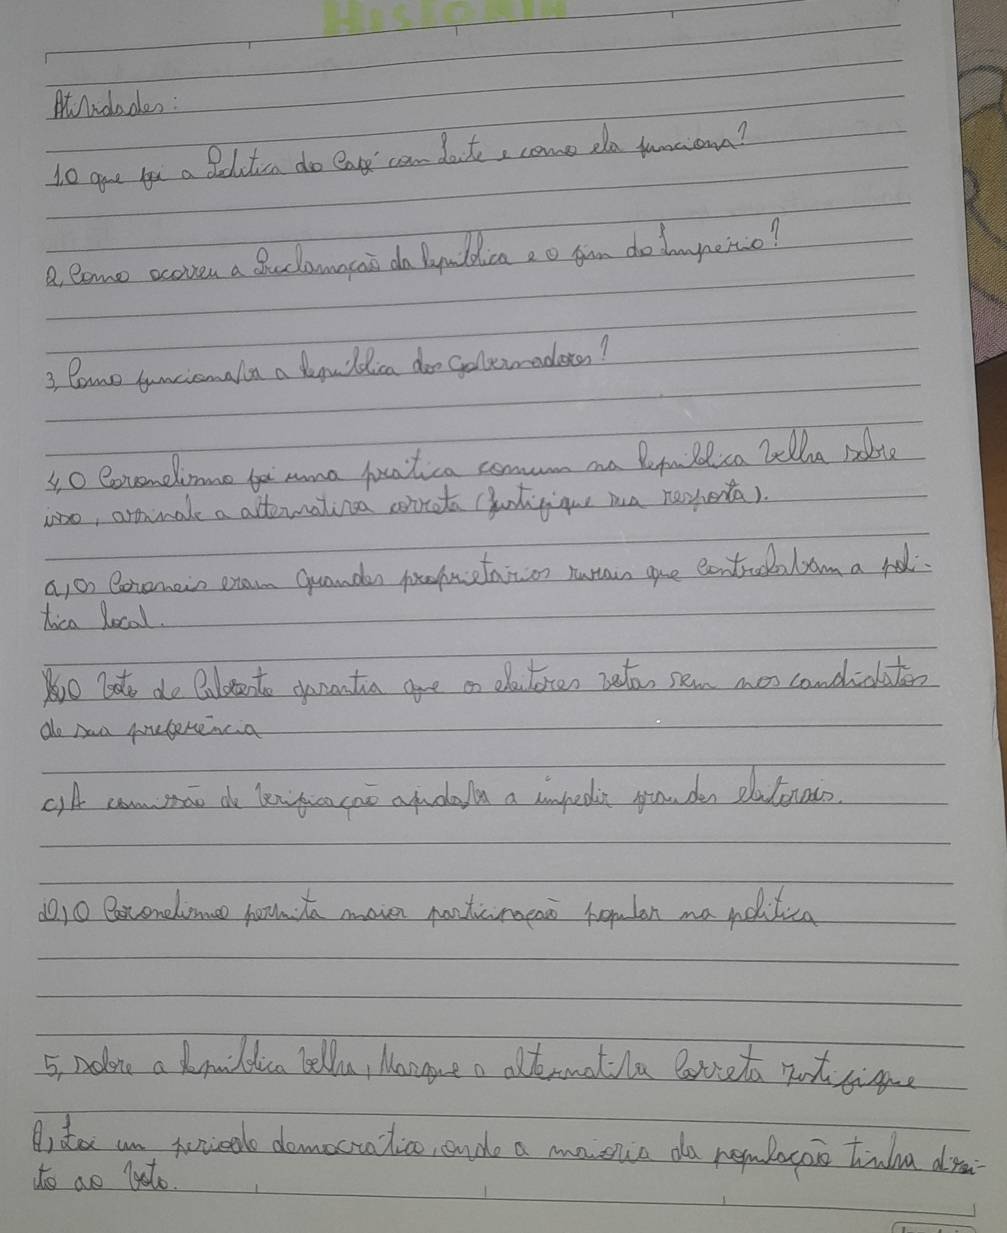 HISTORIA
Atividades:
1. O que foi a Politica do Café com Leite e como ela funciona?
2, Como ocorreu a Proclamação da Republica e o fim do Imperio?
3, Como funcionava a Republica dos Governadores?
4, O Coronelismo foi uma pratica comum na Republica Velha sobre
isso, assinale a alternativa correta (Justifique sua resposta).
a, Os Coroneis eram Grandes proprietarios rurais que controlavam a poli-
tica local.
b, O Voto de Cabresto garantia que os eleitores votas sem nos candidatos
de sua preferência
c) A comissão de Verificação ajudava a impedir fraudes eleitorais.
D, O Coronelismo permita maior participação popular na politica
5, Sobre a Republica Velha, Marque a alternativa Correta justifique
A) Foi um periodo democratico, onde a maioria da população tinha direi-
to ao voto.